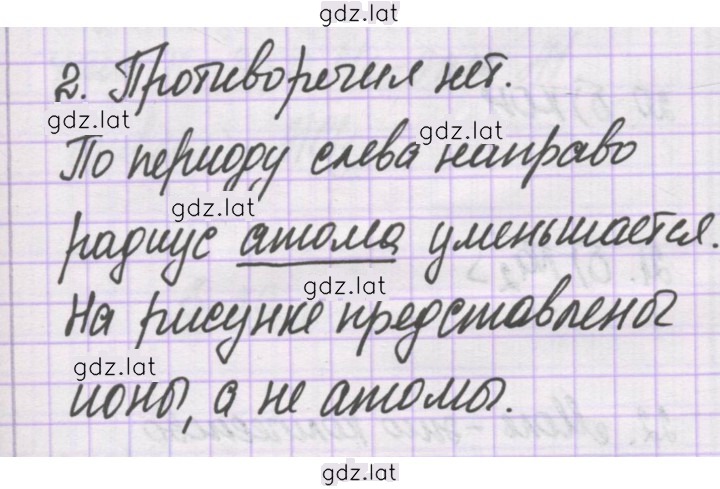 gdz.lat
2. Противоречия нет.
gdz.lat
gdz.lat
По периоду слева направо
gdz.lat
радиус атома уменьшается.
gdz.lat
На рисунке представлены
gdz.lat
ионы, а не атомы.
gdz.lat